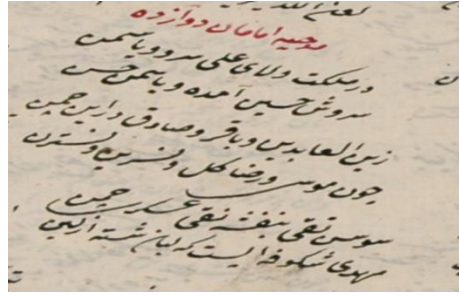 مدحیه امامان دوازده
در مملکت ولای علی سرو و یاسمن
سروش حسین آمده و یاسمن حسن
زین العابدین و باقر و صادق دراین چمن
چون موسی و رضا گل و نسرین و نسترن
سوسن تقی بنفشه نقی عسکر چمن
مهدی شکوفه ایست که